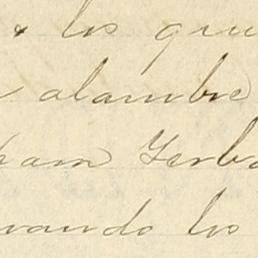 & los que
alambre
ham Yerba
vando los